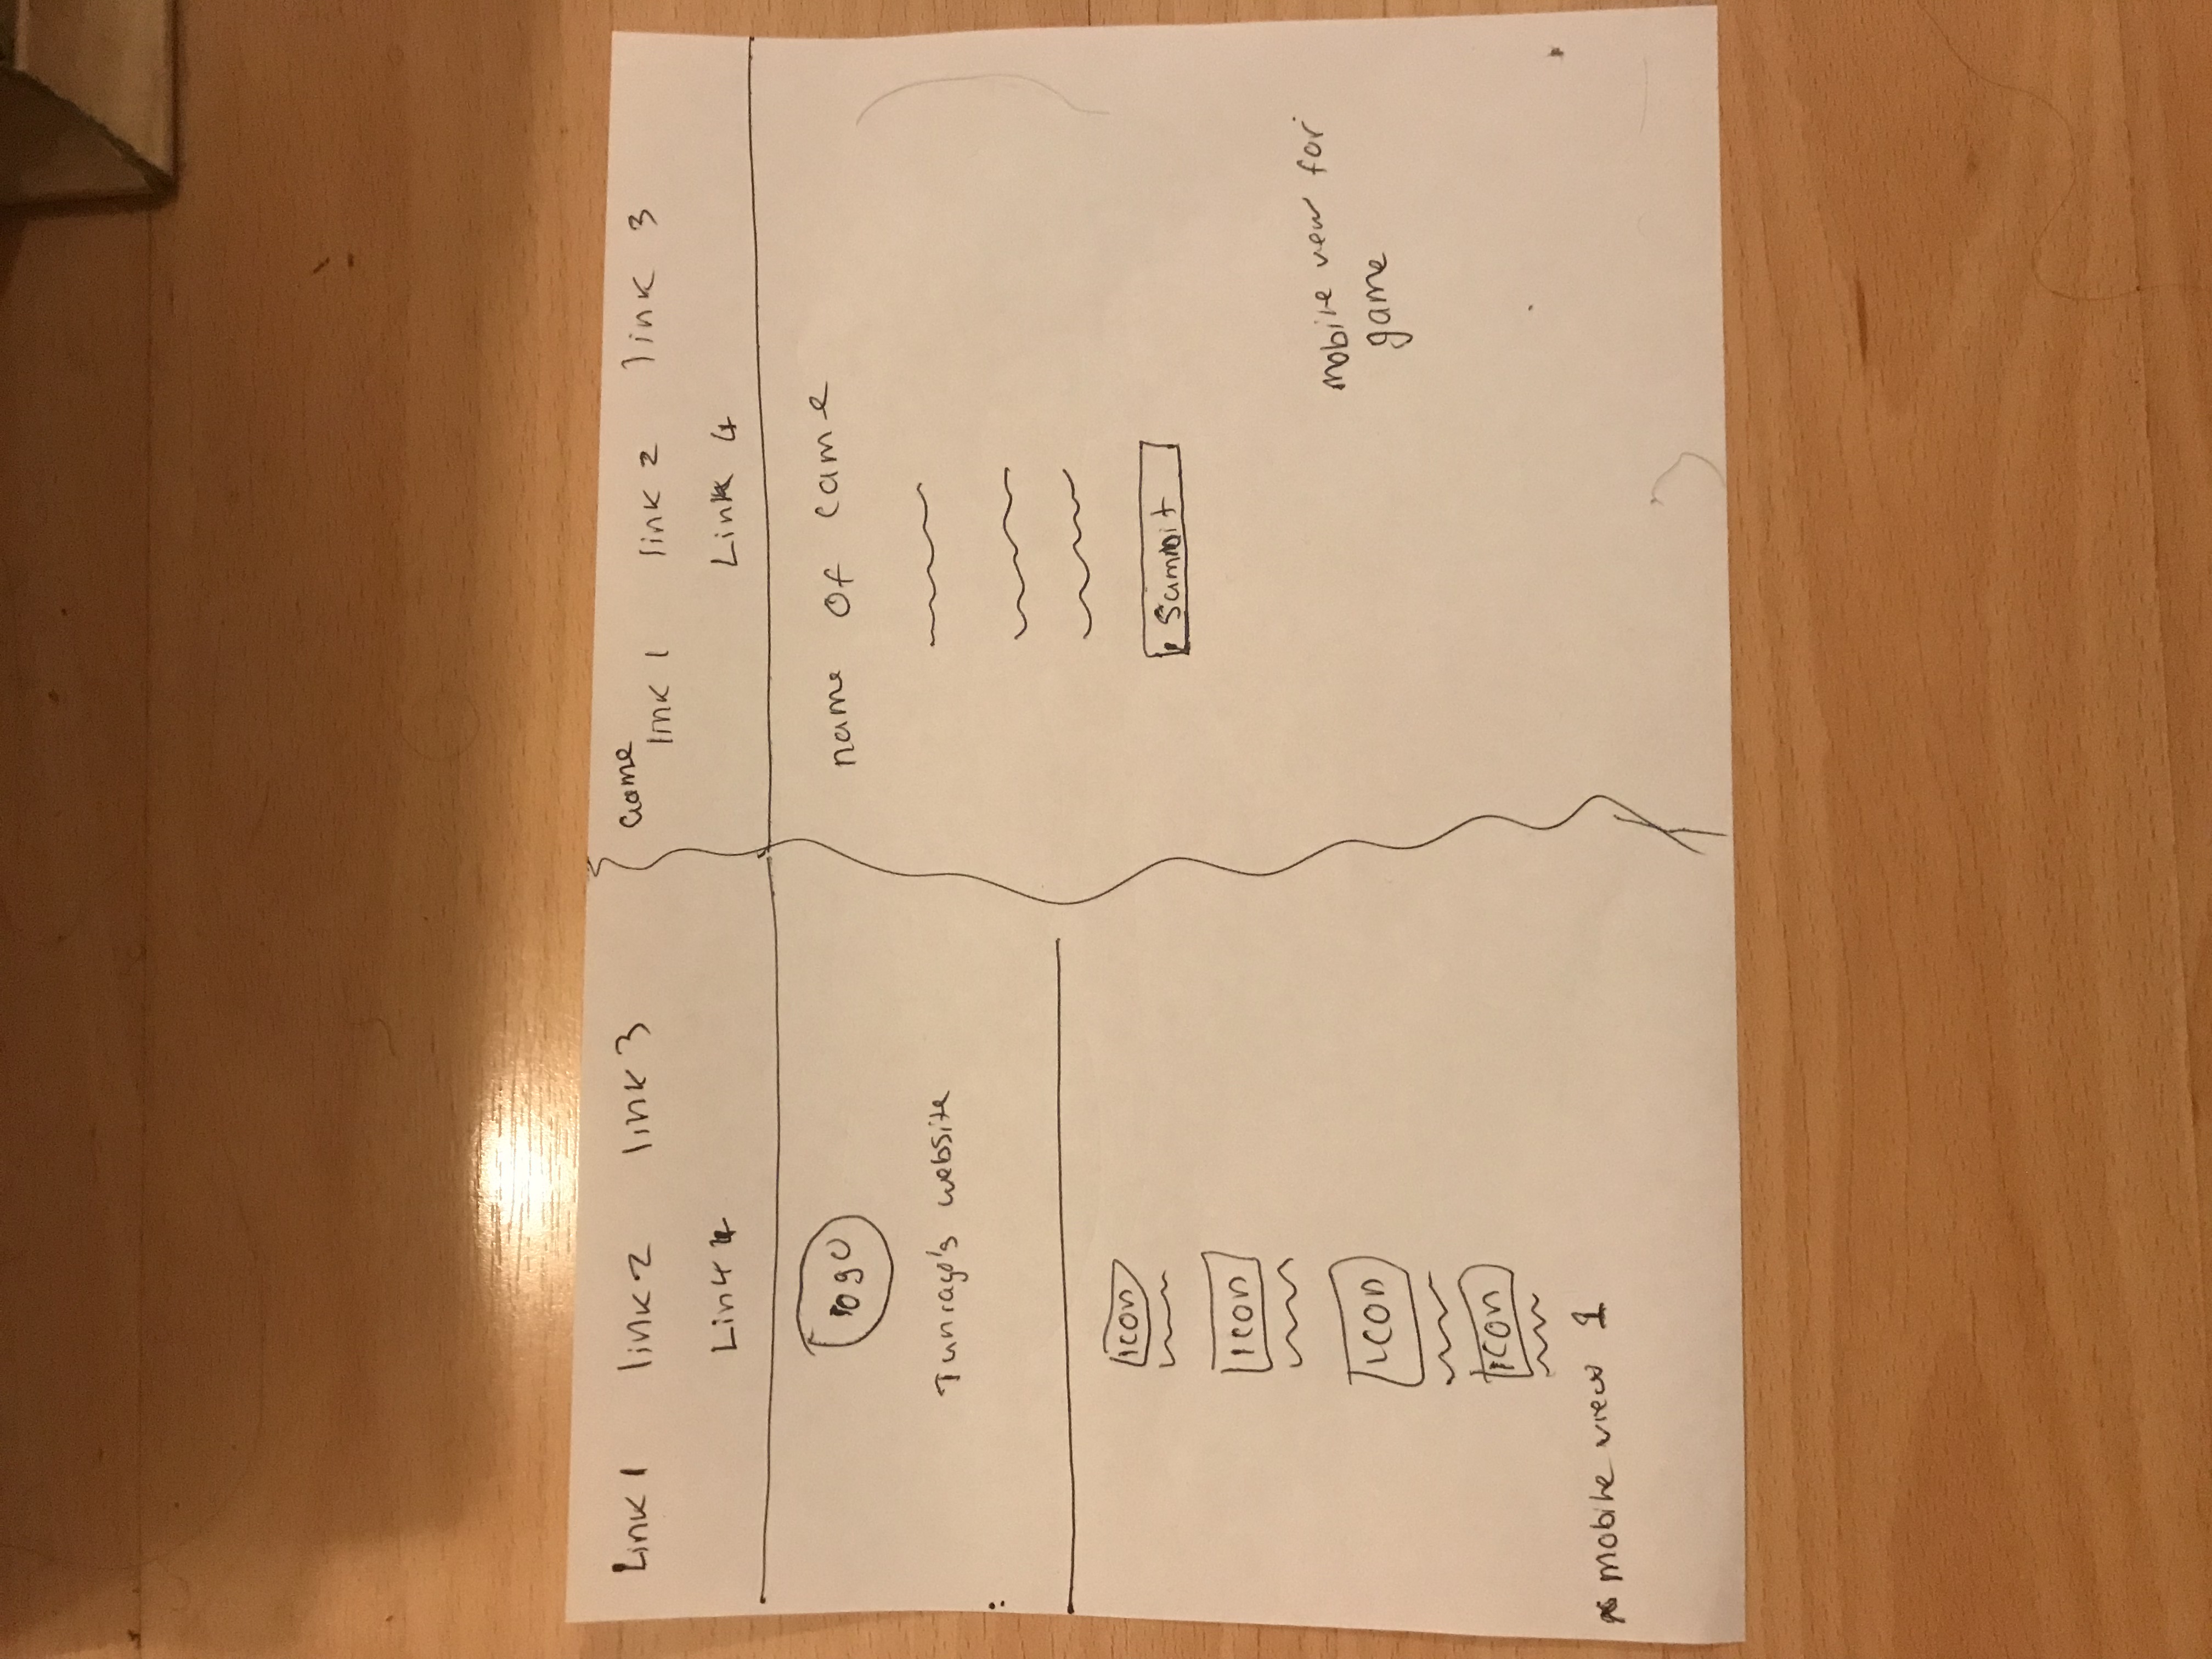 Link 1 link 2 link 3
Link 4
logo
Tunrayo's website
icon
icon
icon
icon
mobile view 1
Game
link 1 link 2 link 3
Link 4
name of Game
Summit
mobile view for
game